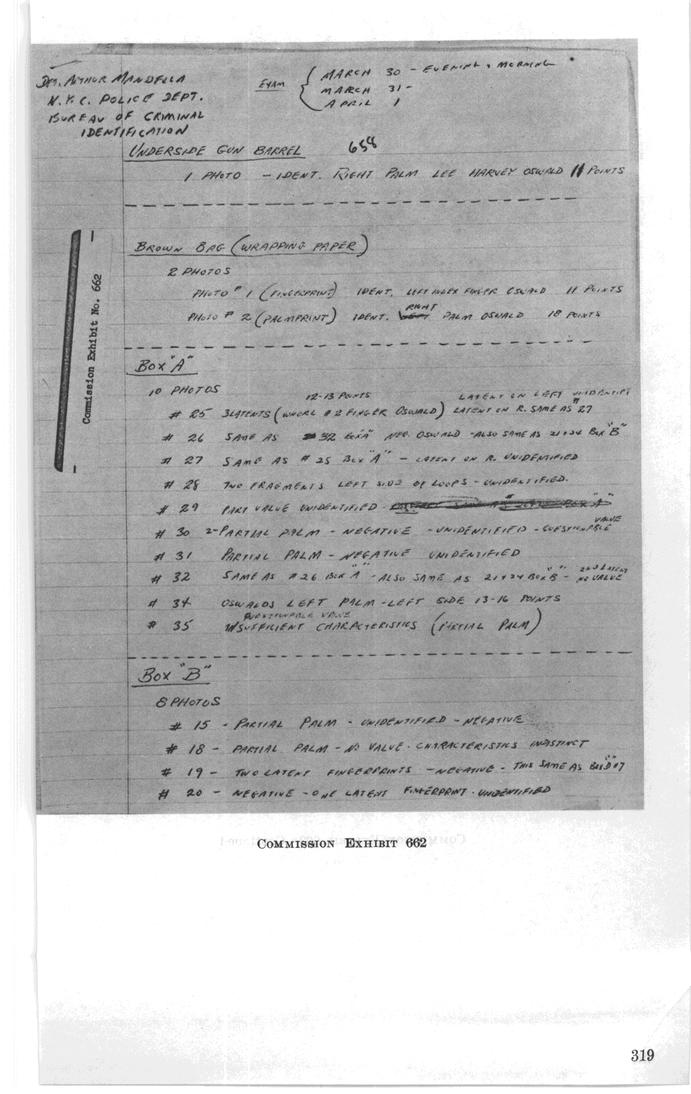 DET. ARTHUR MANDELLA
N.Y.C. POLICE DEPT.
BUREAU OF CRIMINAL
IDENTIFICATION
EXAM { MARCH 30 - EVENING & MORNING
MARCH 31-
APRIL 1
UNDERSIDE GUN BARREL 658
1 PHOTO - IDENT. RIGHT PALM LEE HARVEY OSWALD 11 POINTS
BROWN BAG (WRAPPING PAPER)
2 PHOTOS
PHOTO # 1 (FINGERPRINT) IDENT. LEFT INDEX FINGER OSWALD 11 POINTS
RIGHT
PHOTO # 2 (PALMPRINT) IDENT. PALM OSWALD 18 POINTS
Commission Exhibit No. 662
BOX "A"
10 PHOTOS
12-13 POINTS LATENT ON LEFT UNIDENTIF
# 25 3 LATENTS (WHORL # 2 FINGER OSWALD) LATENT ON R. SAME AS # 27
# 26 SAME AS 32 BOX "A" NEG. OSWALD - ALSO SAME AS 21 + 24 BOX "B"
# 27 SAME AS # 25 BOX "A" - LATENT ON R. UNIDENTIFIED
# 28 TWO FRAGMENTS LEFT SIDE OF LOOPS - UNIDENTIFIED.
# 29 PART VALUE UNIDENTIFIED
# 30 2-PARTIAL PALM - NEGATIVE - UNIDENTIFIED - QUESTIONABLE
VALUE
# 31 PARTIAL PALM - NEGATIVE UNIDENTIFIED
# 32 SAME AS # 26 BOX "A" - ALSO SAME AS 21 + 24 BOX B - 2ND LATENT
NO VALUE
# 34 OSWALDS LEFT PALM - LEFT SIDE 13-16 POINTS
QUESTIONABLE VALUE
# 35 INSUFFICIENT CHARACTERISTICS (PARTIAL PALM)
BOX "B"
8 PHOTOS
# 15 - PARTIAL PALM - UNIDENTIFIED - NEGATIVE
# 18 - PARTIAL PALM - NO VALUE - CHARACTERISTICS INDISTINCT
# 19 - TWO LATENT FINGERPRINTS - NEGATIVE - THIS SAME AS
# 20 - NEGATIVE - ONE LATENT FINGERPRINT - UNIDENTIFIED
COMMISSION EXHIBIT 662
319